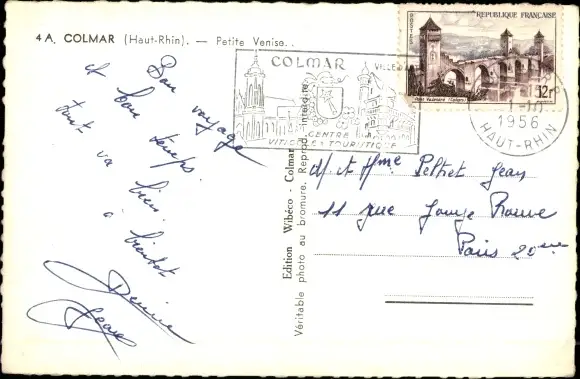 4 A. COLMAR (Haut-Rhin). — Petite Venise.
Bon voyage
et bon temps
tout va bien
à bientôt
Denise
COLMAR
VILLE
CENTRE
VITICOLE & TOURISTIQUE
REPUBLIQUE FRANÇAISE
POSTES
12F
Pont Valentré (Cahors)
1-10
1956
HAUT-RHIN
Edition Wibéco - Colmar
Véritable photo au bromure. Reprod. interdite.
M. et Mme Peltret Jean
11 rue
Paris 20ème